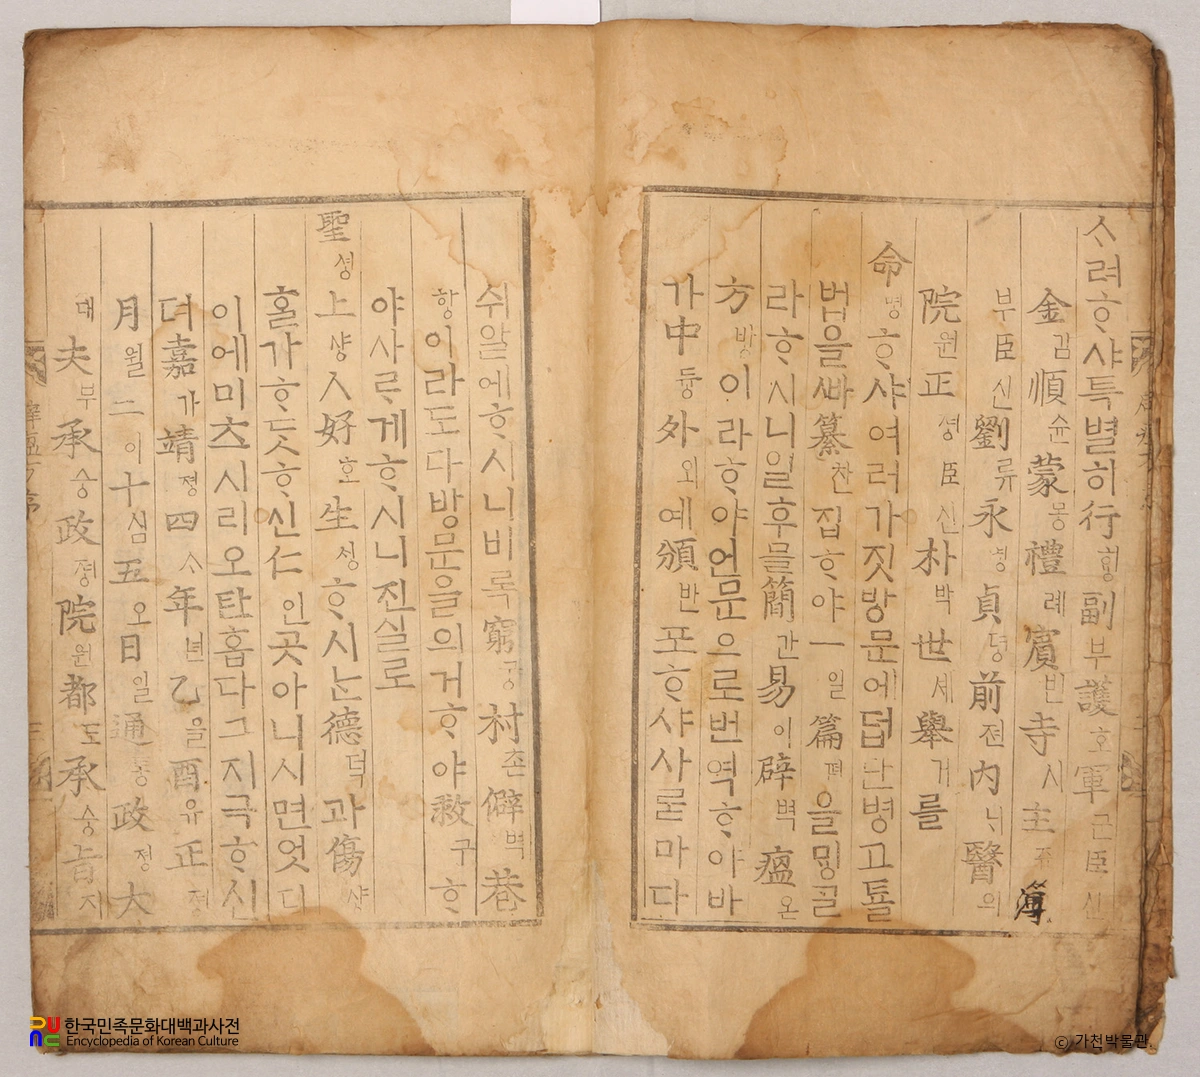 ᄉᆞ려ᄒᆞ샤특별히行ᄒᆡᆼ副부護호軍군臣신
金김順슌蒙몽禮례賓빈寺시主쥬簿
부臣신劉류永영貞뎡前젼內ᄂᆡ醫의
院원正졍臣신朴박世세擧거를
命명ᄒᆞ샤여러가짓방문에덥단병고틸
법을ᄲᅡ纂찬집ᄒᆞ야一일篇편을ᄆᆡᇰᄀᆞᆯ
라ᄒᆞ시니일후믈簡간易이辟벽瘟온
方방이라ᄒᆞ야언문으로번역ᄒᆞ야바
가中듕外외예頒반포ᄒᆞ샤사ᄅᆞᆷ마다
쉬알에ᄒᆞ시니비록窮궁村촌僻벽巷
항이라도다방문을의거ᄒᆞ야救구ᄒᆞ
야사ᄅᆞ게ᄒᆞ시니진실로
聖셩上샹人好호生ᄉᆡᆼᄒᆞ시ᄂᆞᆫ德덕과傷샹
홀가ᄒᆞᄃᆞᆺᄒᆞ신仁인곳아니시면엇디
이에미츠시리오탄홈다그지극ᄒᆞ신
뎌嘉가靖졍四ᄉᆞ年년乙을酉유正졍
月월二이十십五오日일通통政졍大
대夫부承승政졍院원都도承승旨지
한국민족문화대백과사전
Encyclopedia of Korean Culture
© 가천박물관.